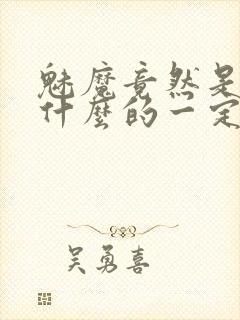 魅魔竟然是
什麼的一定
吴勇喜